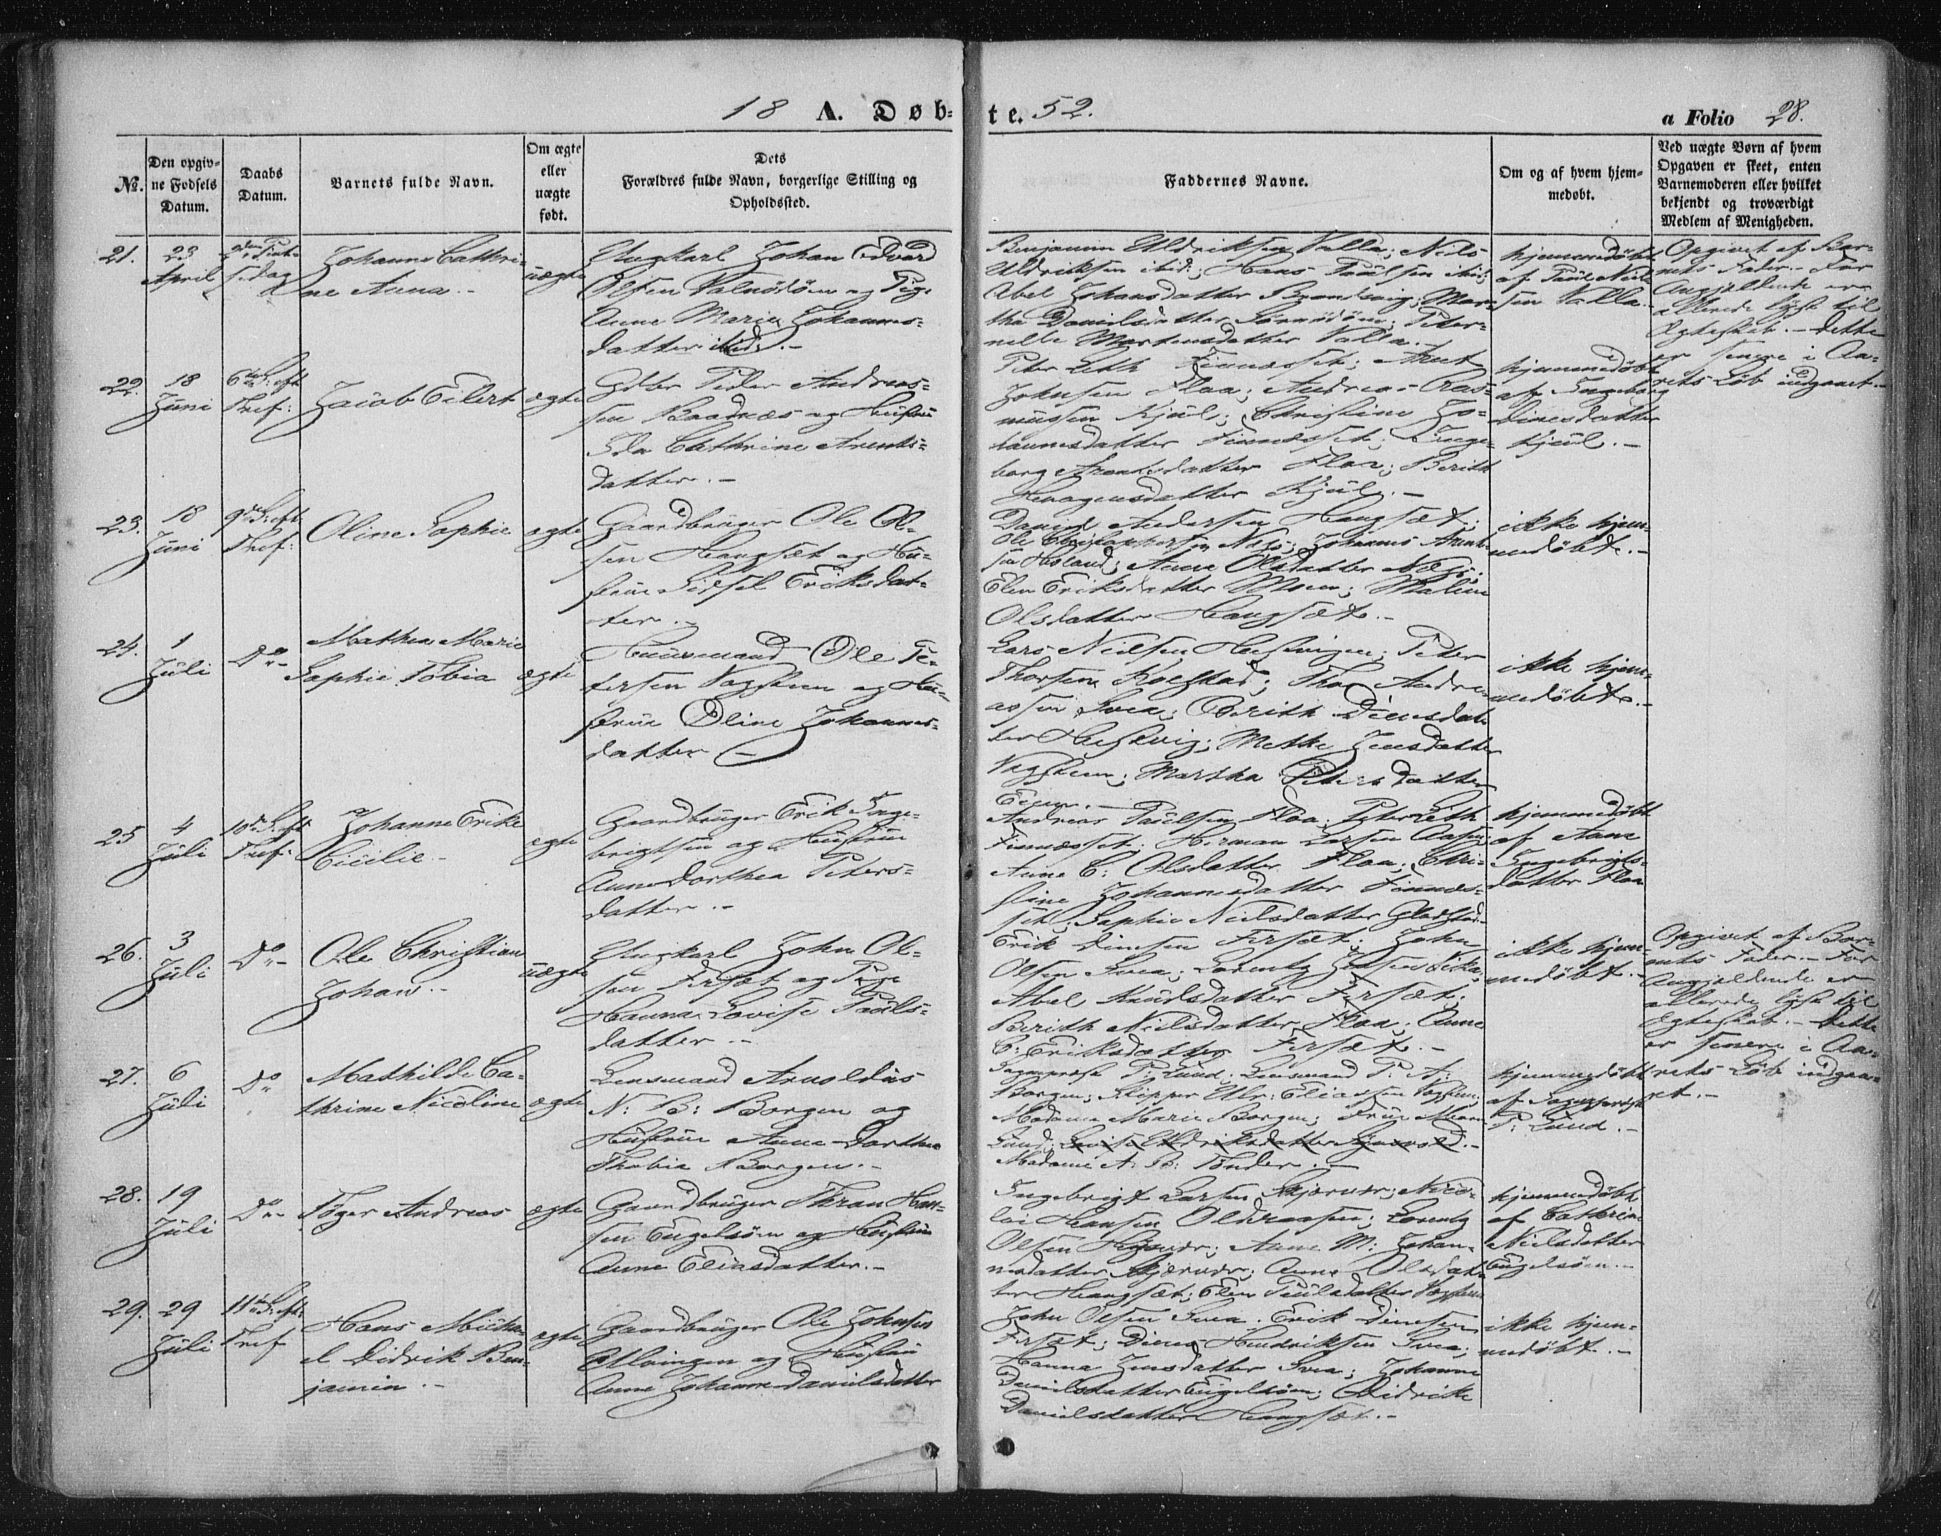 18 A. Døb-
te. 52.
a Folio 28.
No.
Den opgiv-
ne Fødsels
Datum.
Daabs
Datum.
Barnets fulde Navn.
Om ægte
eller
uægte
født.
Dets
Forældres fulde Navn, borgerlige Stilling og
Opholdssted.
Faddernes Navne.
Om og af hvem hjem-
medøbt.
Ved uægte Børn af hvem
Opgaven er skeet, enten
Barnemoderen eller hvilket
bekjendt og troværdigt
Medlem af Menigheden.
21.
23
April
2den
Johanne Cathri-
ne Anna.-
uægte
Ungkarl Johan Edvard
Olsen og Pige
Anne Marie Johannes-
datter ibid.-
Benjamin Uldriksen Valla; Nils
Uldriksen ibid; Hans Paulsen ibid;
Abel Johansdatter; Mar-
tha Danielsdatter; Peter-
nelle Mortensdatter Valla.
hjemmedøbt
af Paul Niel-
sen Valla.
Opgivet af Bar-
nets Fader.- For
Angjeldende er
allerede lyst til
Egteskab.- Dette
er senere i Aa-
rets Løb indgaaet.-
22.
18
Juni
6te S: eft
Tref:
Jacob Eilert
ægte
Gdbr Peder Andreas-
sen Baadnæs og Hustru
Ida Cathrine Arents-
datter.-
Peter Leth Finnæsset; Arnt
Johnsen Flaa; Andreas Ras-
mussen Kjul; Christine Jo-
hannesdatter Finnæsset; Inge-
borg Arentsdatter Flaa; Berith
Haagensdatter Kjul.-
hjemmedøbt
af Ingeborg
Dinesdatter
Kjul.-
23.
18
Juni
9de S: eft
Tref:
Oline Sophie
ægte
Gaardbruger Ole Ol-
sen Haugsæt og Hu-
struе Sidsel Eriksdat-
ter.-
Daniel Andersen Haugsæt;
Ole Christophersen Næs; Johannes Arent-
sen; Anne Olsdatter Næs;
Elen Eriksdatter Moen; Maline
Olsdatter Haugsæt.-
ikke hjem-
medøbt.-
24.
1
Juli
Do-
Mathea Marie
Sophie Tobia
ægte
Huusmand Ole Pe-
tersen Vagsteen og Hu-
strue Oline Johannes-
datter -
Lars Nielsen; Peter
Thorsen Kolstad; Thor Andre-
assen Svea; Berith Dinesdat-
ter; Mette Jensdatter
Vagsteen; Martha Petersdatter
ikke hjem-
medøbt.-
25
4
Juli
10de S. eft
Tref:
Johanne Erike
Cecilie.-
ægte
Gaardbruger Erik Inge-
brigtsen og Hustrue
Anne Dorthea Peters-
datter.-
Andreas Paulsen Flaa; Peter Leth
Finnæsset; Herman Larsen Aasen;
Anne C: Olsdatter Flaa; Chri-
stine Johannesdatter Finnæs-
set; Sophie Nielsdatter
hjemmedøbt
af Anne
Ingebrigts-
datter Flaa
26.
3
Juli
Do-
Ole Christian
Johan.-
uægte
Ungkarl John Ol-
sen Forsæt og Pige
Hanna Lovise Pauls-
datter.-
Erik Dinesen Forsæt; John
Olsen Svea; Lorentz Jensen;
Abel Knudsdatter Forsæt;
Berith Nielsdatter Flaa; Anne
C: Eriksdatter Forsæt.-
ikke hjem-
medøbt.-
Opgivet af Bar-
nets Fader.- For
Angjeldende er
allerede lyst til
Egteskab.- Dette
er senere i Aa-
rets Løb indgaa-
et.-
27.
6
Juli
Do
Mathilde Ca-
thrine Nicoline
ægte
Lensmand Arnoldus
N: B: Borgen og
Hustrue Anne Dorthea
Thobia Borgen.-
Sogneprest P: Lund; Lensmand P. A:
Borgen; Skipper Eliassen;
Madame Marie Borgen; Frue
Lund; Lovise Uldriksdatter.-
Madame A: B: Tønder.-
hjemmedøbt
af Sogneprest
P: Lund.-
28.
19
Juli
Do-
Toger Andreas
ægte
Gaardbruger Thran Han-
sen Engelsøen og Hustrue
Anne Eliasdatter.-
Ingebrigt Larsen Skjervær; Nico-
lai Hansen; Lorentz
Olsen; Anne M: Johan-
nesdatter Skjervær; Anne Olsdat-
ter Haugsæt; Elen Paulsdatter Vagsteen
hjemmedøbt
af Cathrine
Nielsdatter
Engelsøen.-
29.
29
Juli
11te S: eft.
Tref
Hans Micha-
el Didrik Ben-
jamin.-
ægte
Gaardbruger Ole Johnsen
og Hustru
Anne Johanne Danielsdatter
John Olsen Svea; Erik Dinesen
Forsæt; Dines Hendriksen Svea;
Hanna Jensdatter Svea; Johanne
Danielsdatter Engelsøen; Didrike
Danielsdatter Haugsæt.-
ikke hjem-
medøbt.-